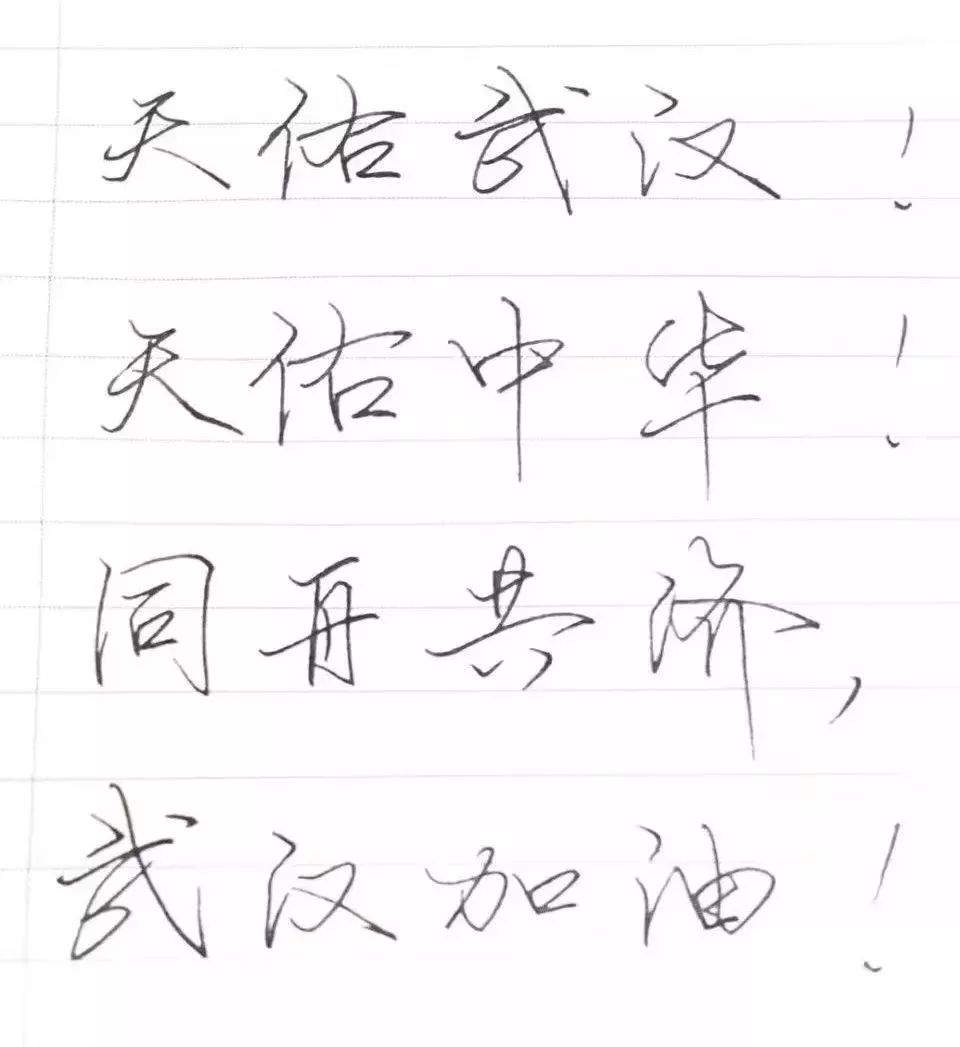 天佑武汉！
天佑中华！
同舟共济，
武汉加油！